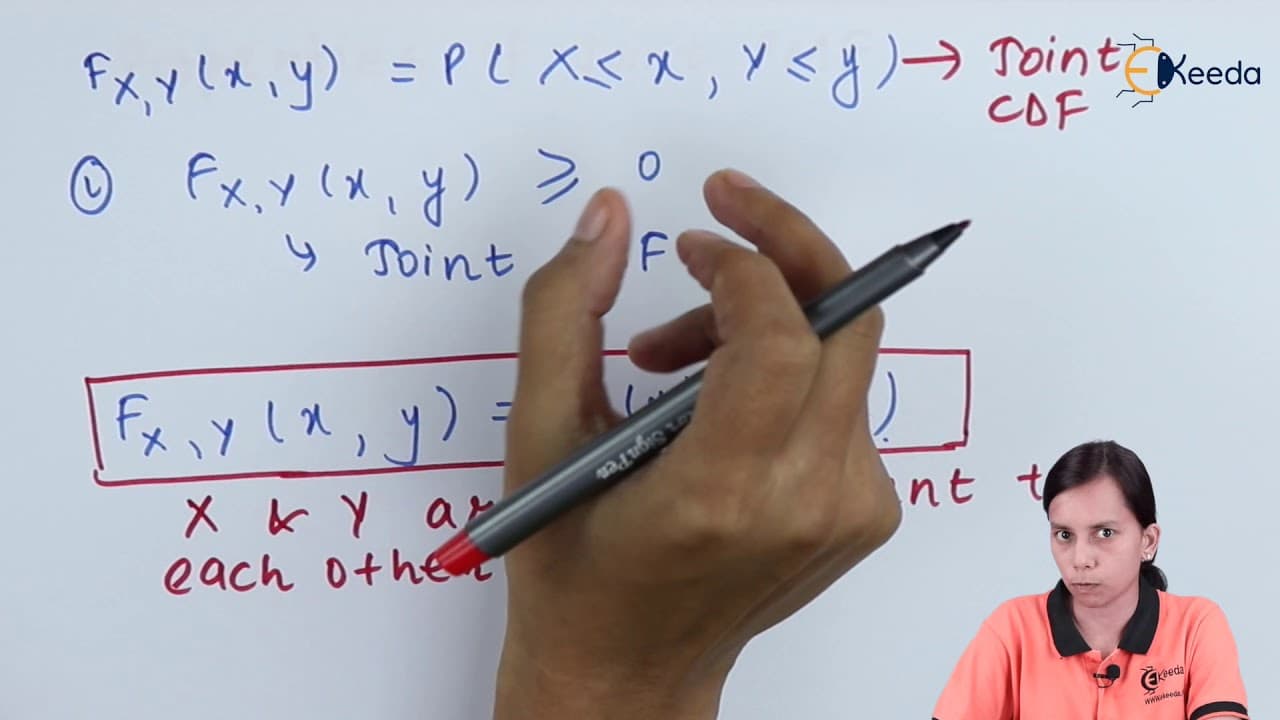 F_{X,Y}(x, y) = P(X ≤ x, Y ≤ y) → Joint CDF
Keeda
① F_{X,Y}(x, y) ≥ 0
↳ Joint F
F_{X,Y}(x, y) = )
X & Y a nt t
each other
Keeda